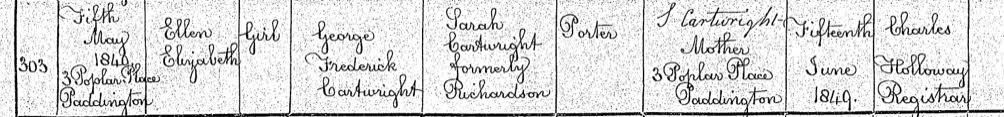 303
Fifth
May
1849
3 Poplar Place
Paddington
Ellen
Elizabeth
Girl
George
Frederick
Cartwright
Sarah
Cartwright
formerly
Richardson
Porter
S Cartwright
Mother
3 Poplar Place
Paddington
Fifteenth
June
1849.
Charles
Holloway
Registrar